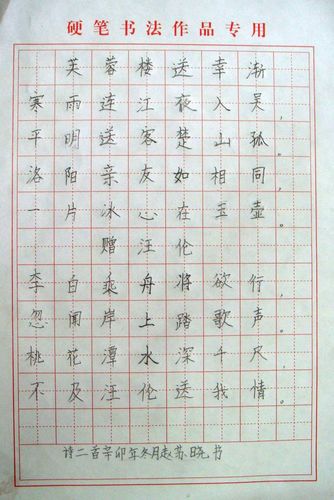 硬笔书法作品专用
芙蓉楼送幸渐
寒雨连江夜入吴，
平明送客楚山孤。
洛阳亲友如相同，
一片冰心在玉壶。
赠汪伦
李白乘舟将欲行，
忽闻岸上踏歌声。
桃花潭水深千尺，
不及汪伦送我情。
诗二首辛卯年冬月赵苏晓书